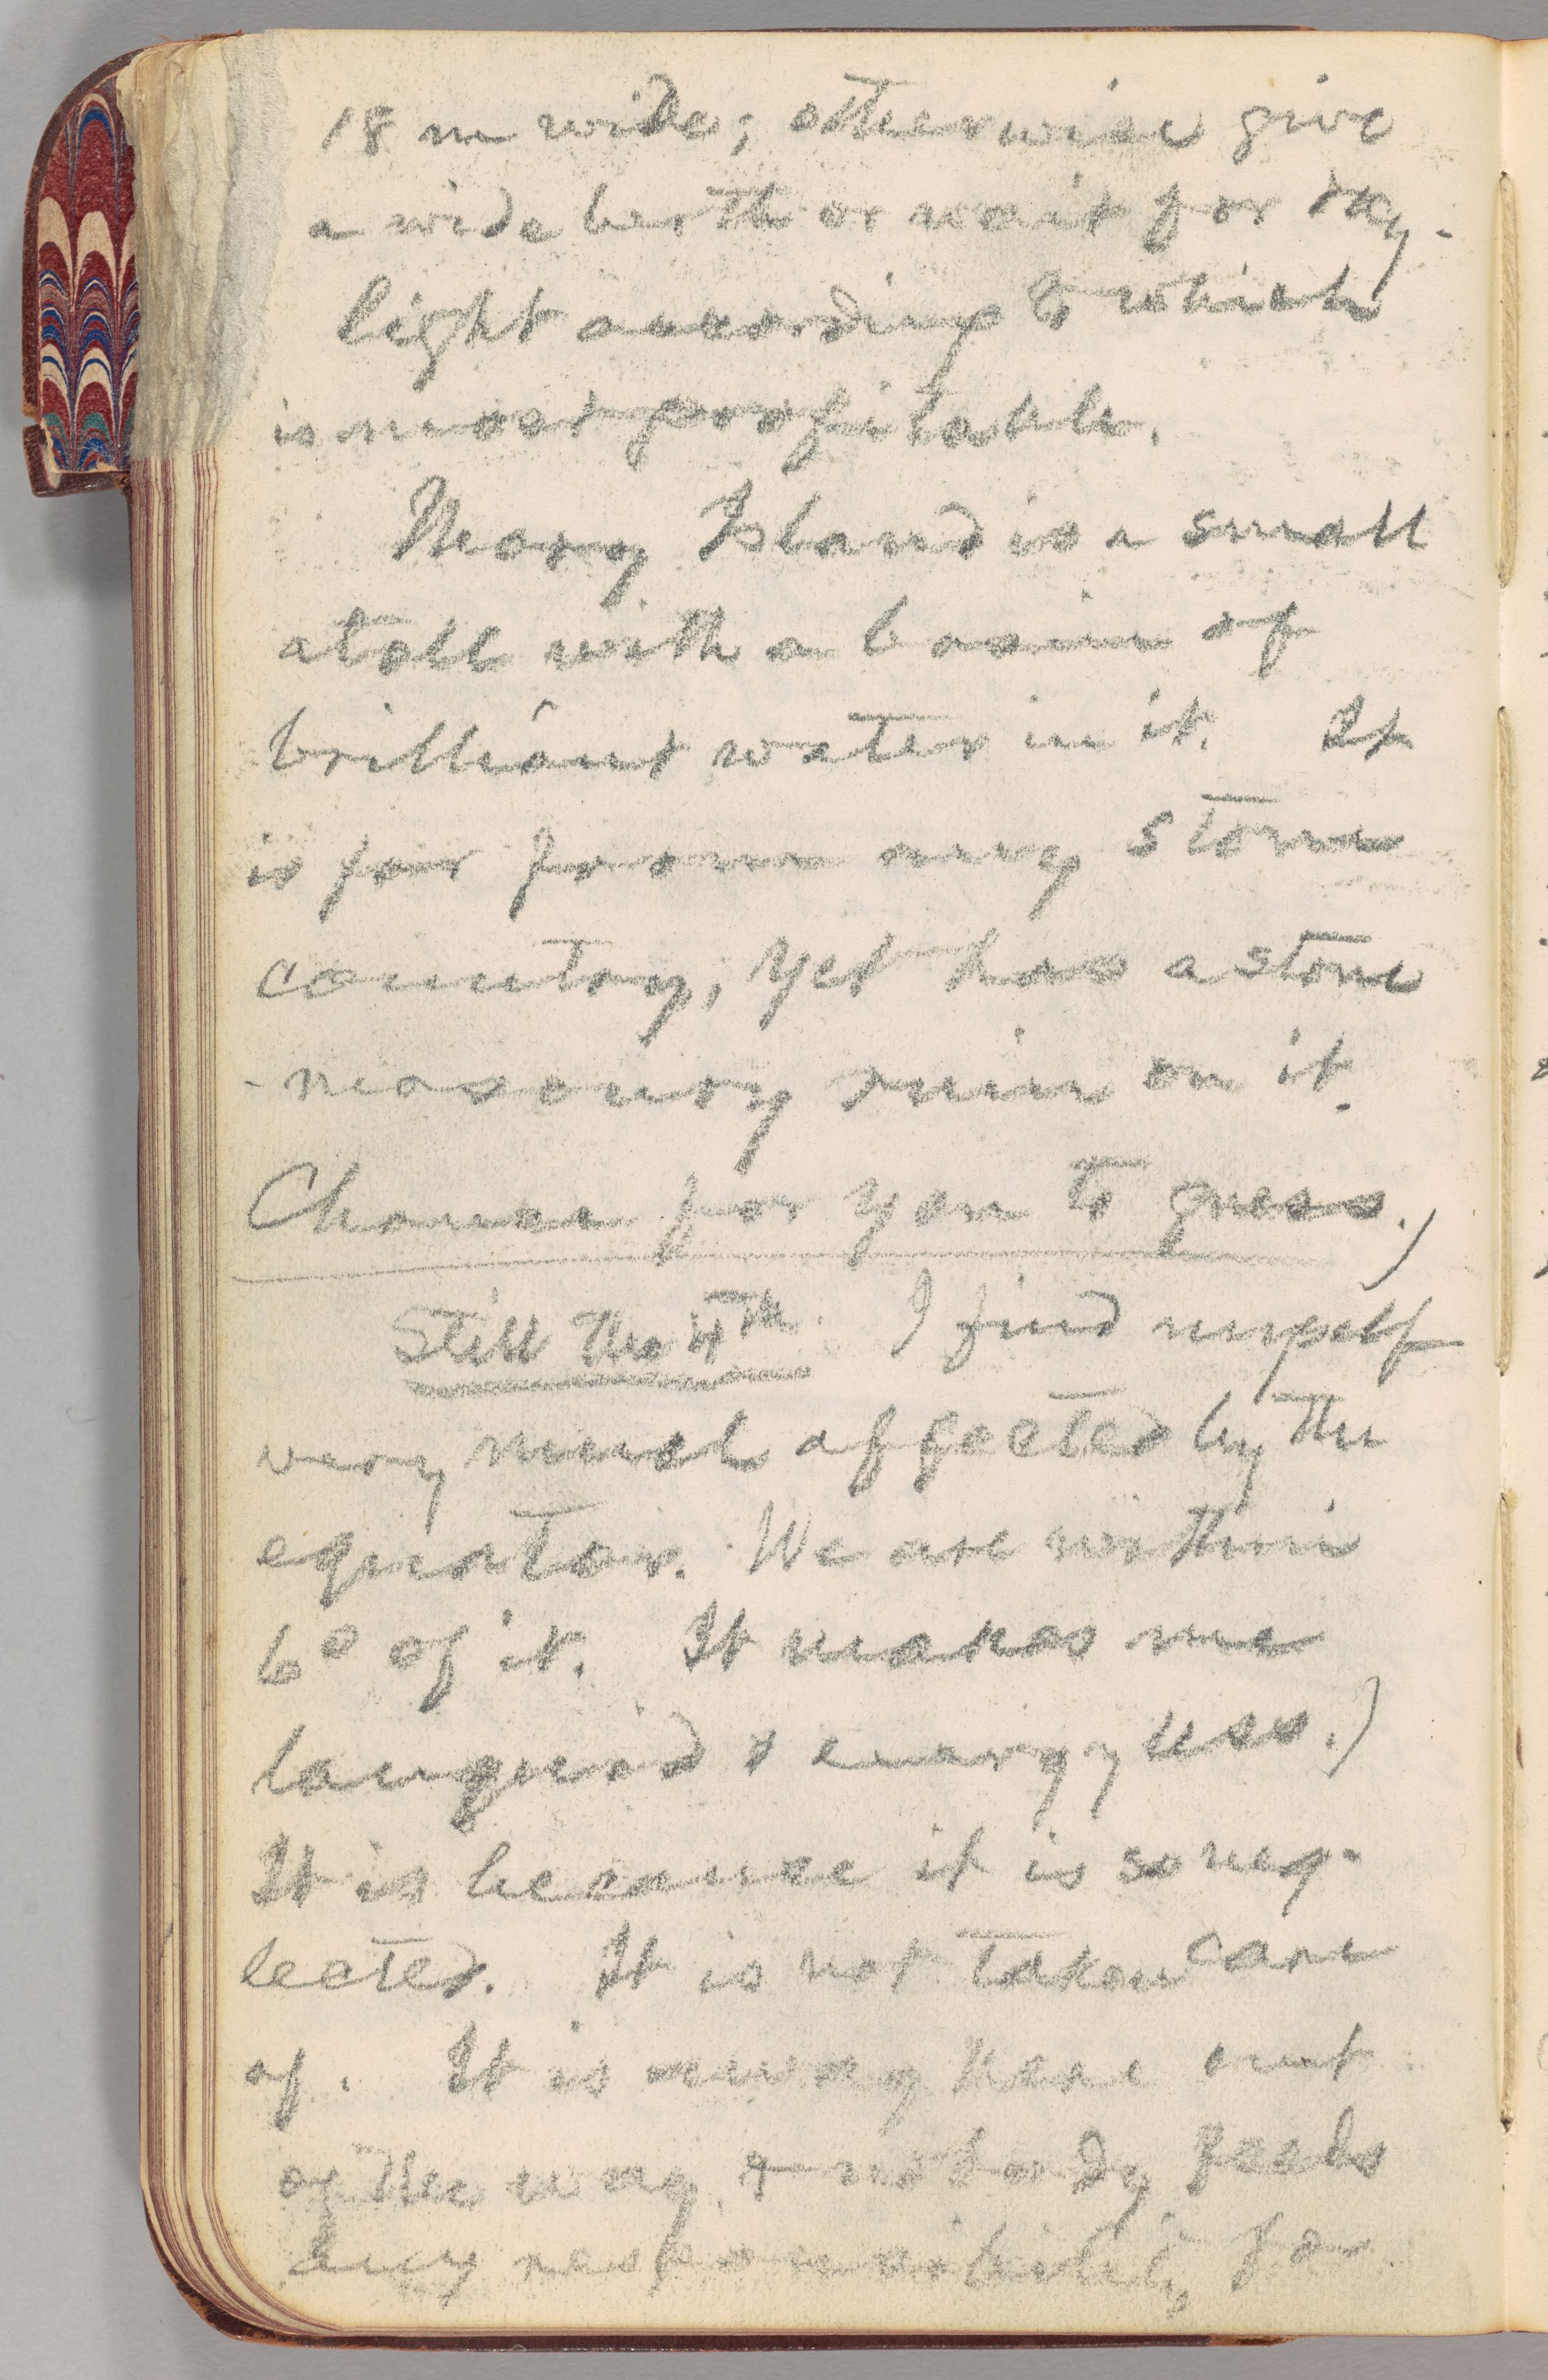 18 m wide; otherwise give
a wide berth or wait for day-
light according to which
is most profitable.
Theory Island is a small
atoll with a basin of
brilliant water in it. It
is far from any stone
country, yet has a stone
-masonry ruin on it.
Chance for you to guess.)
Still the 4th. I find myself
very much affected by the
equator. We are within
6° of it. It makes me
languid & energyless.)
It is because it is so neg-
lected. It is not taken care
of. It is away here out
of the way, & nobody feels
any responsibility for